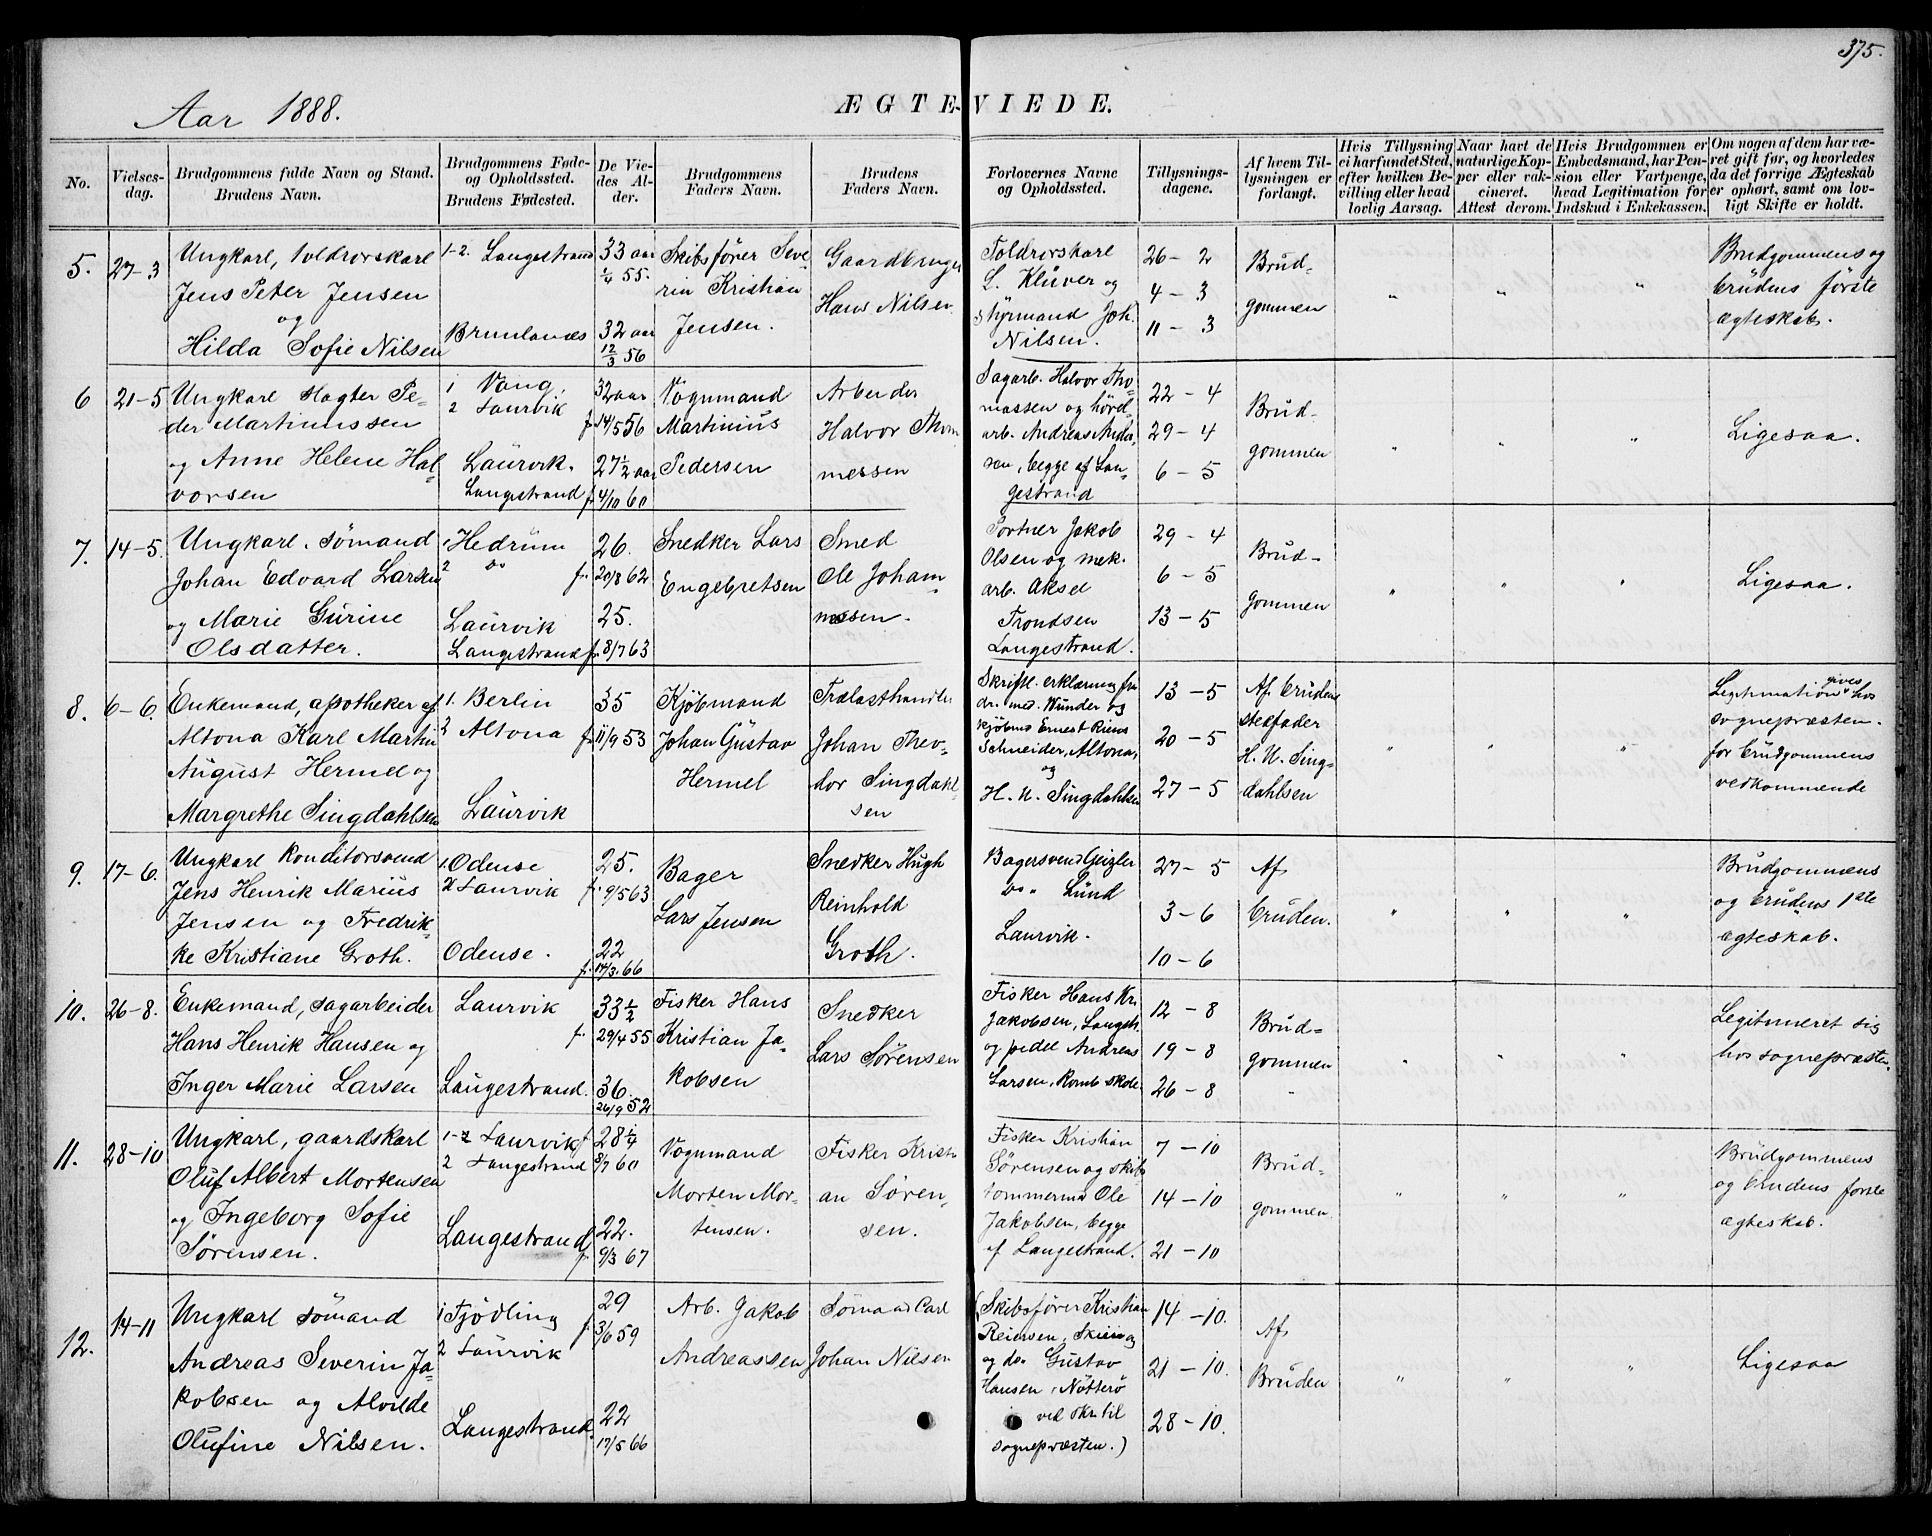 375.
Aar 1888.
ÆGTEVIEDE.
No.
Vielses-
dag.
Brudgommens fulde Navn og Stand.
Brudens Navn.
Brudgommens Føde-
og Opholdssted.
Brudens Fødested.
De Vie-
des Al-
der.
Brudgommens
Faders Navn.
Brudens
Faders Navn.
Forlovernes Navne
og Opholdssted.
Tillysnings-
dagene.
Af hvem Til-
lysningen er
forlangt.
Hvis Tillysning
ei har fundet Sted,
efter hvilken Be-
villing eller hvad
lovlig Aarsag.
Naar havt de
naturlige Kop-
per eller vak-
cineret.
Attest derom.
Hvis Brudgommen er
Embedsmand, har Pen-
sion eller Vartpenge,
hvad Legitimation for
Indskud i Enkekassen.
Om nogen af dem har væ-
ret gift før, og hvorledes
da det forrige Ægteskab
er ophørt, samt om lov-
ligt Skifte er holdt.
5.
27-3
Ungkarl, toldrorskarl
Jens Peter Jensen
og
Hilda Sofie Nilsen
1-2. Langestrand
Brunlanæs
33 aar
1/4 55.
32 aar
12/3 56
Skibsfører Seve-
rin Kristian
Jensen.
Gaardbruger
Hans Nilsen
Toldrorskarl
L. Klüver og
styrmand Joh.
Nilsen.
26-2
4-3
11-3
Brud-
gommen
" " "
Brudgommens og
brudens første
ægteskab.
6
21-5
Ungkarl slagter Pe-
der Martinussen
og Anne Helene Hal-
vorsen
1 Vang,
2 Laurvik
Laurvik.
Langestrand
32 aar
f. 14/5 56
27 1/2 aar
f. 4/10 60
Vognmand
Martinius
Pedersen
Arbeider
Halvor Thom
messen
Sagarb. Halvor Tho-
massen og høvl-
arb. Andreas Ander-
sen, begge af Lan-
gestrand
22-4
29-4
6-5
Brud-
gommen
" " "
Ligesaa.
7.
14-5.
Ungkarl, sømand
Johan Edvard Larsen
og Marie Gurine
Olsdatter.
1 Hedrum
2 do
Laurvik
Langestrand
26.
f. 20/8 62
25.
f. 8/7 63
Snedker Lars
Engebretsen
Smed
Ole Johan-
nesen.
Portner Jakob
Olsen og mek.
arb. Aksel
Trondsen
Langestrand.
29-4
6-5
13-5
Brud-
gommen
" " "
Ligesaa.
8.
6-6.
Enkemand, apotheker af
Altona Karl Martin
August Hermel og
Margrethe Singdahlsen
1. Berlin
2 Altona
Laurvik
35
f. 11/9 53
Kjøbmand
Johan Gustav
Hermel
Trælasthandler
Johan Theo-
dor Singdahl-
sen
Skriftl. erklæring fra
dr. med. Wunder og
kjøbm. Ernest Riens
Schneider, Altona,
og
H. N. Singdahlsen
13-5
20-5
27-5
Af brudens
stedfader
H. N. Sing-
dahlsen
" " "
Legitimation gives hos
sognepræsten.
for brudgommens
vedkommende
9.
17-6.
Ungkarl konditorsvend
Jens Henrik Marius
Jensen og Fredrik-
ke Kristiane Groth.
1. Odense
2 Laurvik
Odense.
25.
f. 9/5 63
22
f. 14/3. 66
Bager
Lars Jensen
Snedker Hugh
Reinhold
Groth.
Bagersvend Geizler
do " Lund
Laurvik.
27-5
3-6
10-6
Af
bruden.
" " "
Brudgommens
og brudens 1ste
ægteskab.
10.
26-8.
Enkemand, sagarbeider
Hans Henrik Hansen og
Inger Marie Larsen
Laurvik
Langestrand.
33 1/2
f. 29/4 55
36.
26/9 52
Fisker Hans
Kristian Ja-
kobsen
Snedker
Lars Sørensen
Fisker Hans Kr.
Jakobsen, Langestr.
og pedel Andreas
Larsen, Komb skole.
12-8
19-8
26-8
Brud-
gommen
" " "
Legitimeret sig
hos sognepræsten.
11.
28-10
Ungkarl, gaardskarl
Oluf Albert Mortensen
og Ingeborg Sofie
Sørensen.
1-2 Laurvik
2 Langestrand
Langestrand
f. 28 1/4
8/7 60
22.
f. 9/3 67
Vognmand
Morten Mor-
tensen.
Fisker Kristi
an Søren-
sen.
Fisker Kristian
Sørensen og skibs
tømmermd Ole
Jakobsen, begge
af Langestrand.
7-10
14-10
21-10
Brud-
gommen
" " "
Brudgommens
og brudens første
ægteskab.
12.
14-11
Ungkarl sømand
Andreas Severin Ja-
kobsen og Alvilde
Olufine Nilsen.
1 Tjødling
2 Laurvik
Langestrand.
29
f. 3/6 59
22
17/5 66
Arb. Jakob
Andreassen
Sømand Carl
Johan Nilsen
(Skibsfører Kristian
Reiersen, Skien
og do Gustav
Hansen, Nøtterø
ved skr. til
sognepræsten.)
14-10.
21-10.
28-10.
Af
Bruden
" " "
Ligesaa